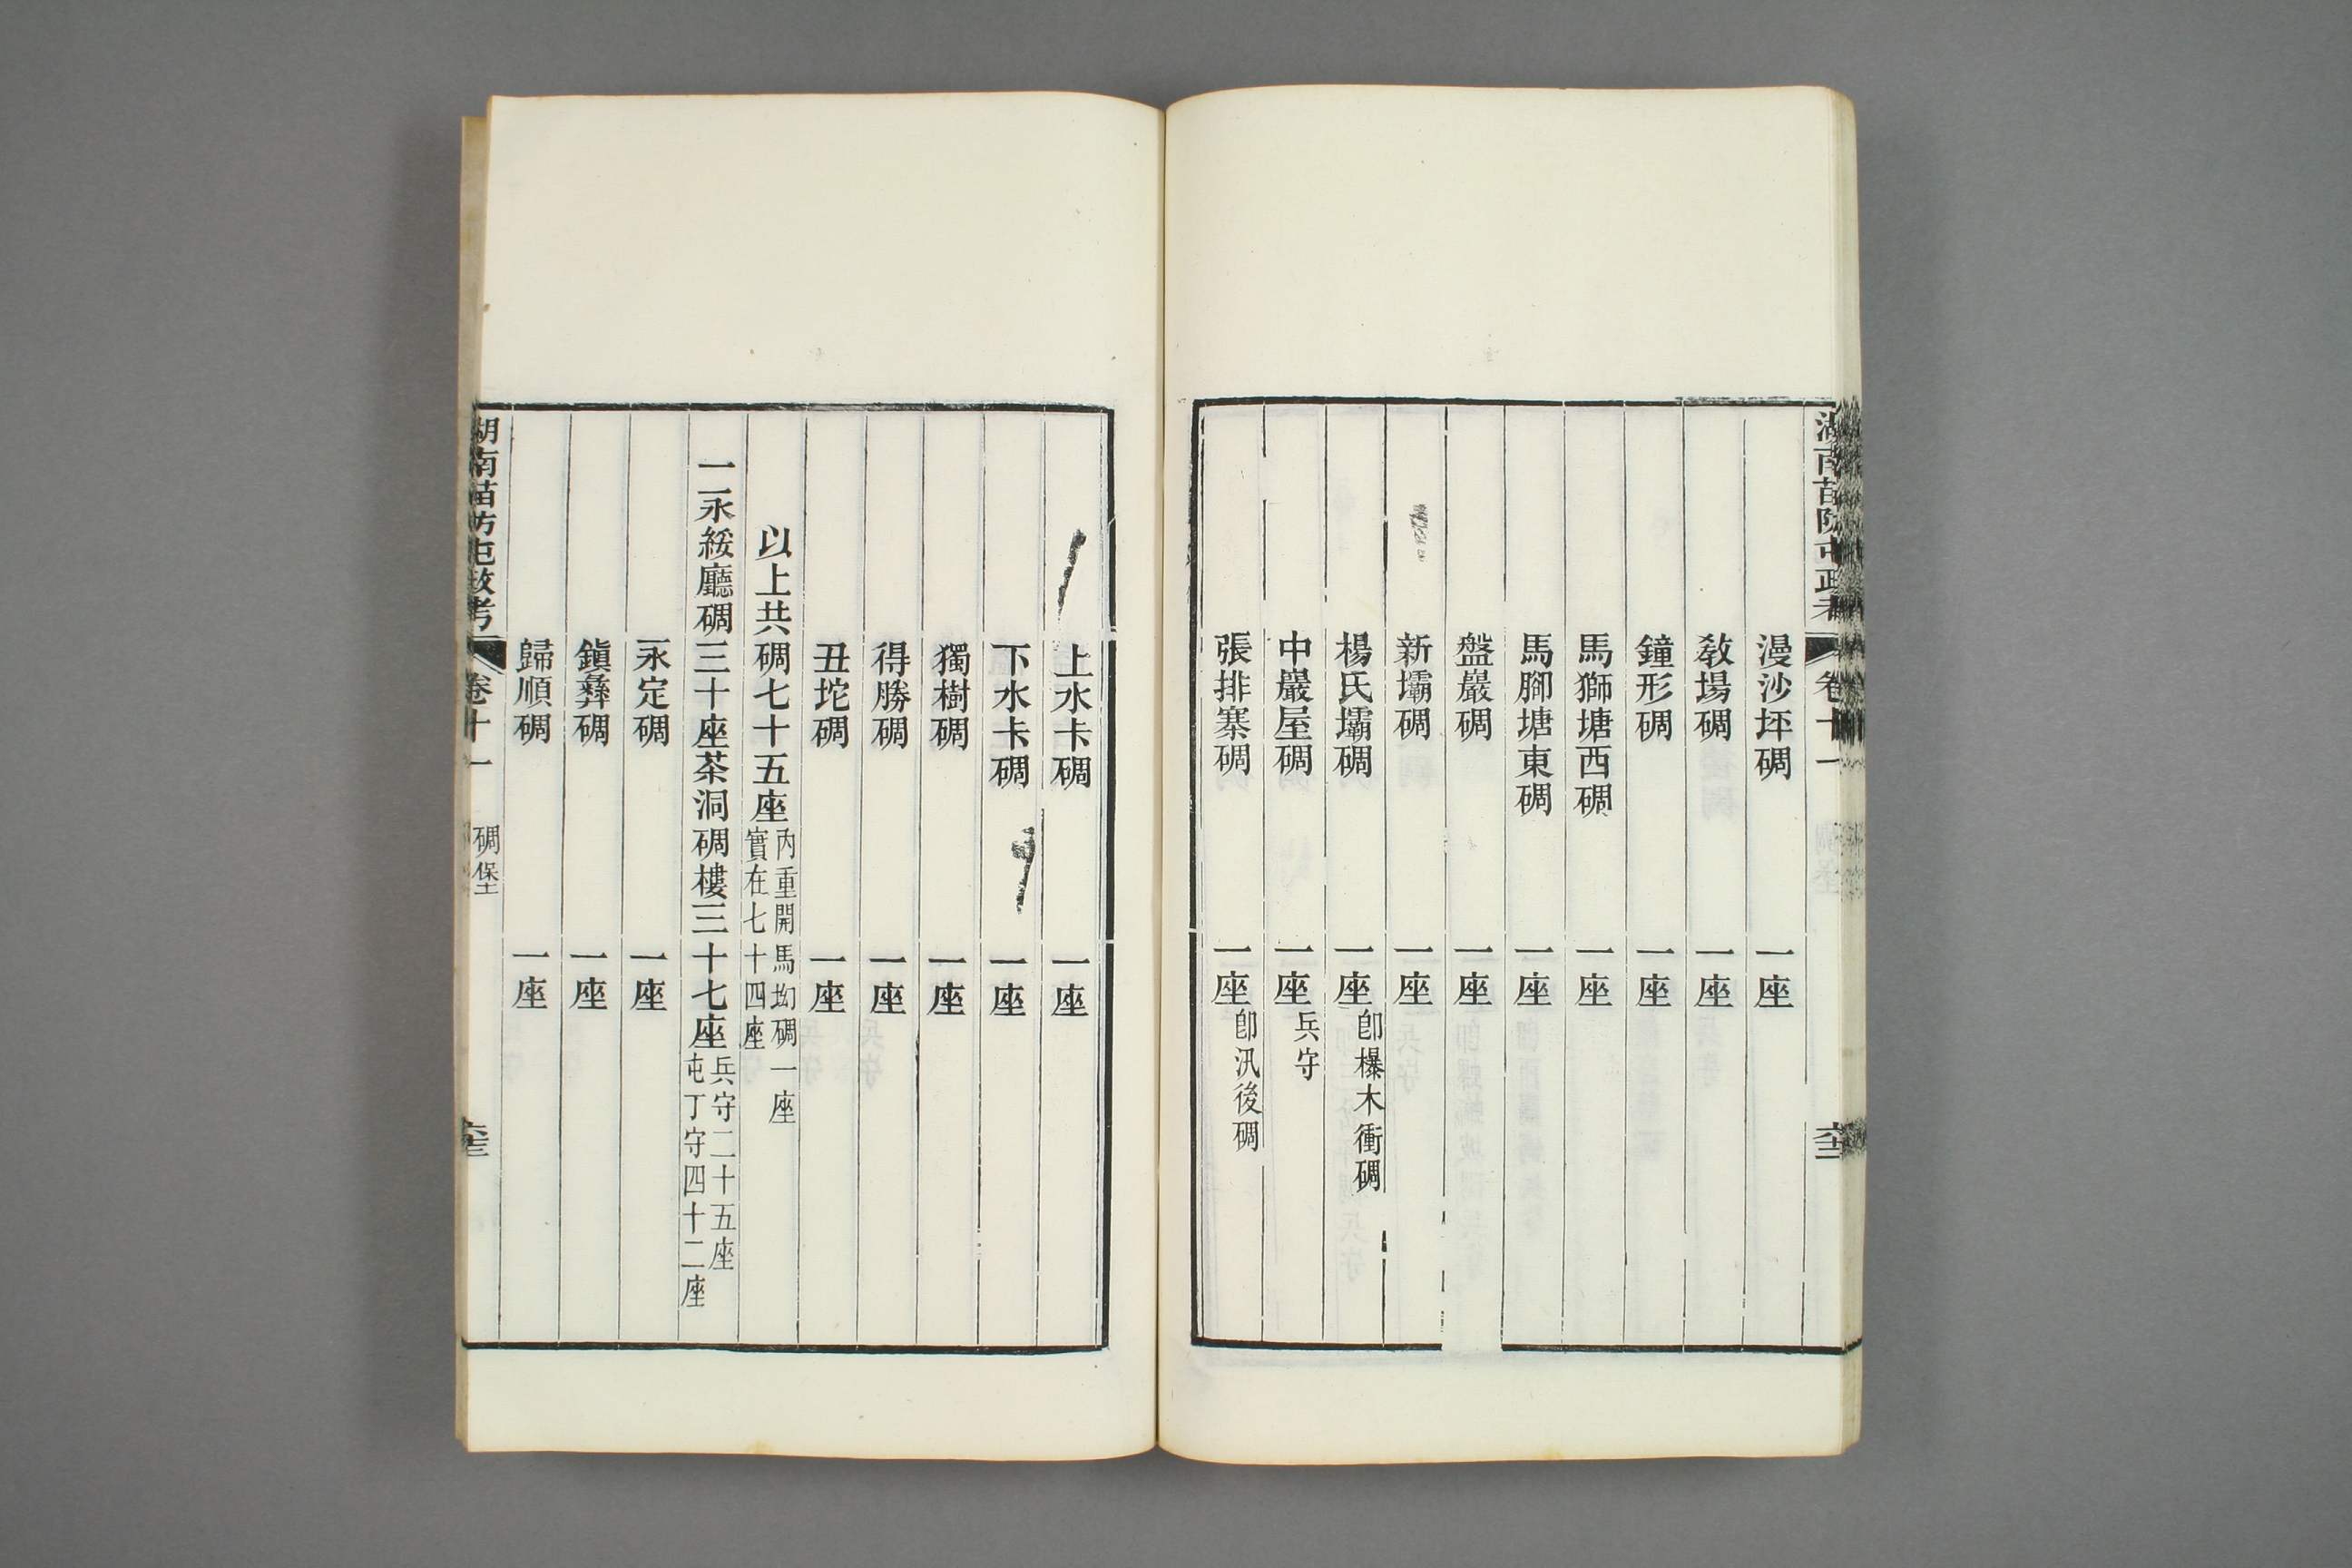 湖南苗防屯政考
卷十一
碉堡
六十二
漫沙坪碉　一座
教場碉　一座
鐘形碉　一座
馬獅塘西碉　一座
馬腳塘東碉　一座
盤巖碉　一座
新壩碉　一座
楊氏壩碉　一座 卽㯡木衝碉
中巖屋碉　一座 兵守
張排寨碉　一座 卽汛後碉
上水卡碉　一座
下水卡碉　一座
獨樹碉　一座
得勝碉　一座
丑坨碉　一座
以上共碉七十五座 內重開馬坳碉一座
實在七十四座
一永綏廳碉三十座茶洞碉樓三十七座 兵守二十五座
屯丁守四十二座
永定碉　一座
鎭彝碉　一座
歸順碉　一座
湖南苗防屯政考
卷十一
碉堡
六十三